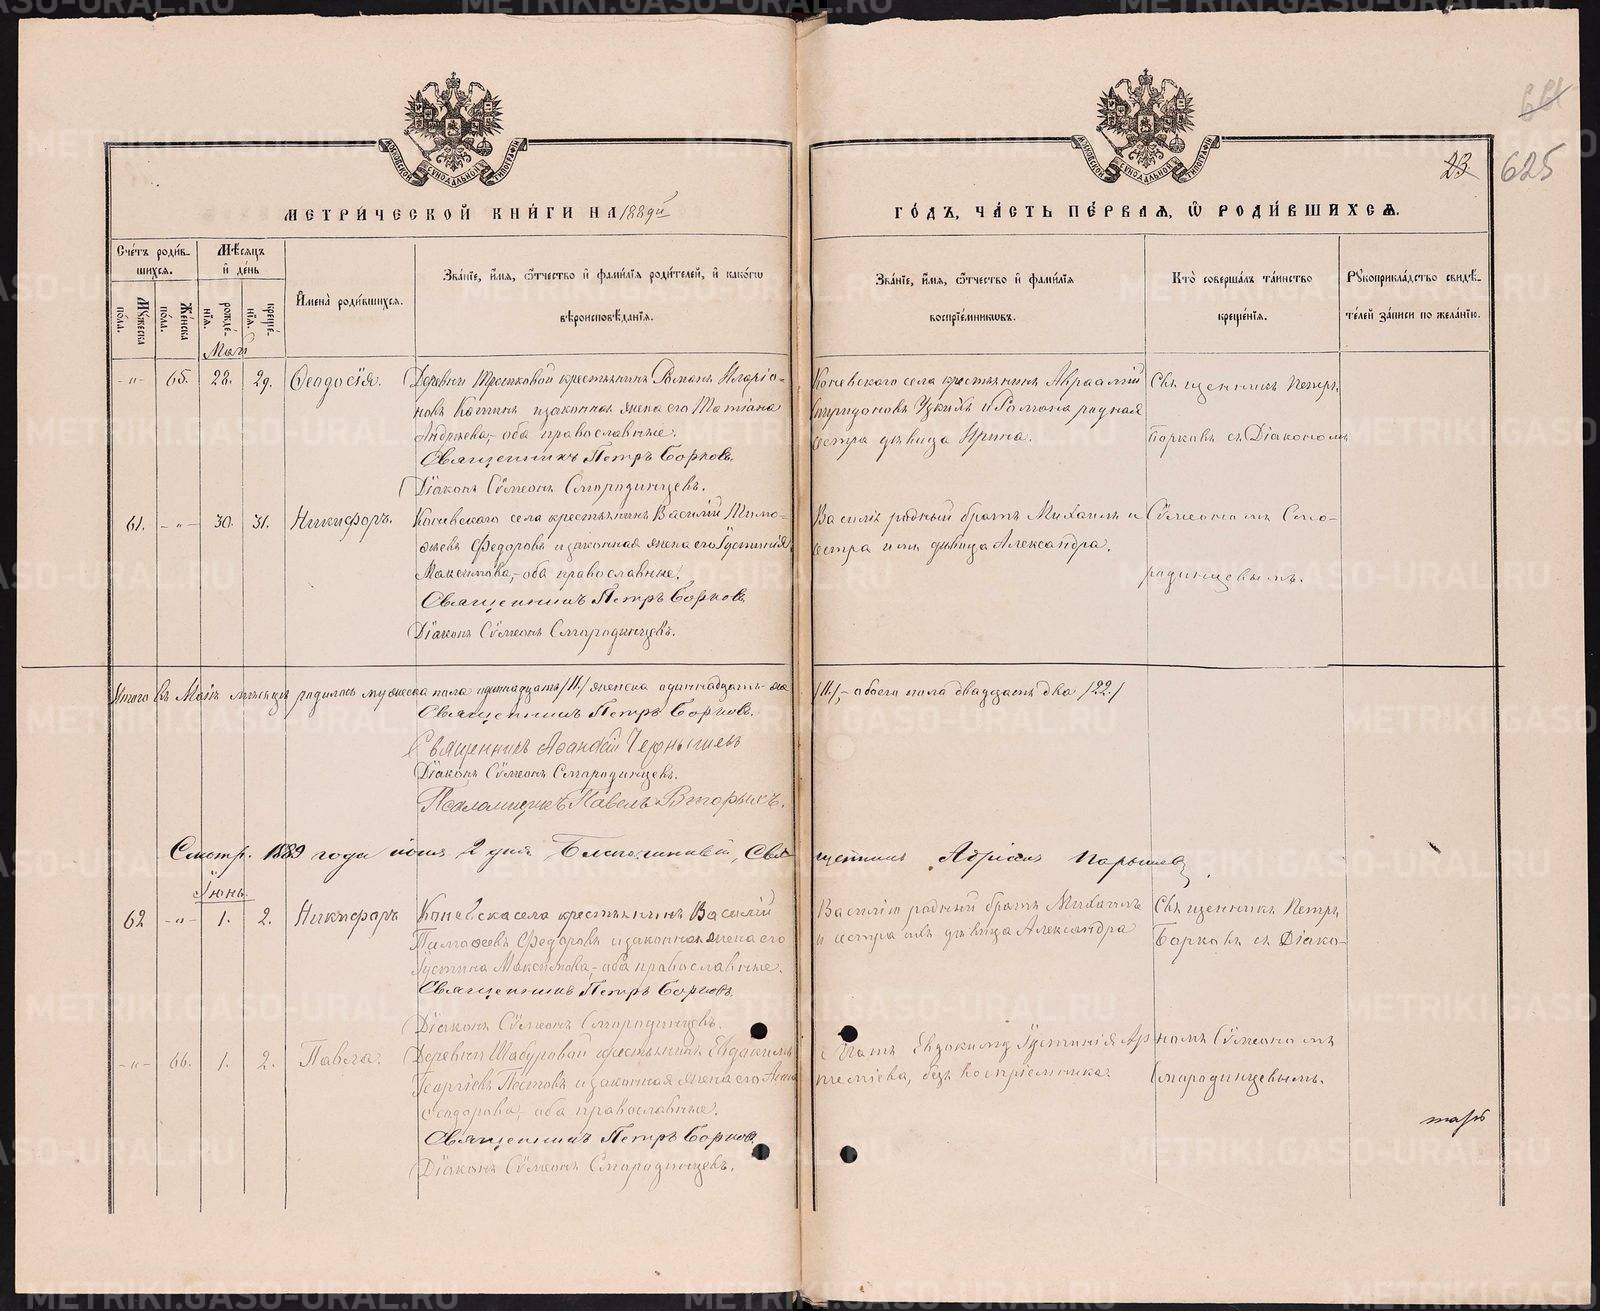 625
23
МОСКОВСКОЙ СѴНОДАЛЬНОЙ ТИПОГРАФІИ
МОСКОВСКОЙ СѴНОДАЛЬНОЙ ТИПОГРАФІИ
МЕТРИ́ЧЕСКОЙ КНИ́ГИ НА 1889й
ГО́ДЪ, ЧА́СТЬ ПЕ́РВАЯ, Ѽ РОДИ́ВШИХСЯ.
Сче́тъ роди́в-
шихся.
Мѣ́сяцъ
и҆ де́нь
Мꙋ́жеска
по́ла.
Же́нска
по́ла.
рожде́-
нїя.
креще́-
нїя.
И҆мена̀ роди́вшихся.
Зва́нїе, и҆́мя, ѻ҆́тчество и҆ фами́лїя роди́телей, и҆ како́гѡ
вѣроисповѣ́данїя.
Зва́нїе, и҆́мя, ѻ҆́тчество и҆ фами́лїя
воспрїе́мниковъ.
Кто̀ соверша́лъ та́инство
креще́нїя.
Рꙋкоприкла́дство свидѣ́-
телей за́писи по жела́нїю.
Май
-„- 65. 28. 29. Ѳеодосія.
Деревни Тростковой крестьянинъ Романъ Иларіо-
новъ Котинъ и законная жена его Татіана
Андреева,- оба православные.
Священникъ Петръ Борковъ.
Діаконъ Сѵмеонъ Смородинцевъ.
Коневского села крестьянинъ Авраамій
Спиридоновъ Узкихъ и Романа родная
сестра дѣвица Ирина.
Священникъ Петръ
Борковъ съ Діакономъ
61. -„- 30. 31. Никифоръ.
Коневского села крестьянинъ Василій Тимо-
ѳеевъ Ѳедоровъ и законная жена его Іустинія
Максимова,- оба православные.
Священникъ Петръ Борковъ.
Діаконъ Сѵмеонъ Смородинцевъ.
Василія родный братъ Михаилъ и
сестра ихъ дѣвица Александра.
Сѵмеономъ Смо-
родинцевымъ.
Итого въ Маѣ мѣсяцѣ родилось мужеска пола одиннадцать /11./ женска одиннадцать-же /11./,- обоего пола двадцать два /22./
Священникъ Петръ Борковъ.
Священникъ Аѳанасій Чернышевъ
Діаконъ Сѵмеонъ Смородинцевъ.
Псаломщикъ Павелъ Вторыхъ.
Смотр. 1889 года іюня 2 дня Благочинный, Священникъ Адріанъ Парышевъ.
Іюнь.
62 -„- 1. 2. Никифоръ
Коневска села крестьянинъ Василій
Тимоѳеевъ Ѳедоровъ и законная жена его
Іустина Максимова,- оба православные.
Священникъ Петръ Борковъ.
Діаконъ Сѵмеонъ Смородинцевъ.
Василію родный братъ Михаилъ
и сестра ихъ дѣвица Александра
Священникъ Петръ
Борковъ съ Діако-
-„- 66. 1. 2. Павла.
Деревни Шабуровой крестьянинъ Евдокимъ
Георгіевъ Постовъ и законная жена его Анна
Ѳеодорова,- оба православные.
Священникъ Петръ Борковъ.
Діаконъ Сѵмеонъ Смородинцевъ.
Мать Евдокима Іустинія Ар-
теміева, безъ воспріемника.
номъ Сѵмеономъ
Смародинцевымъ.